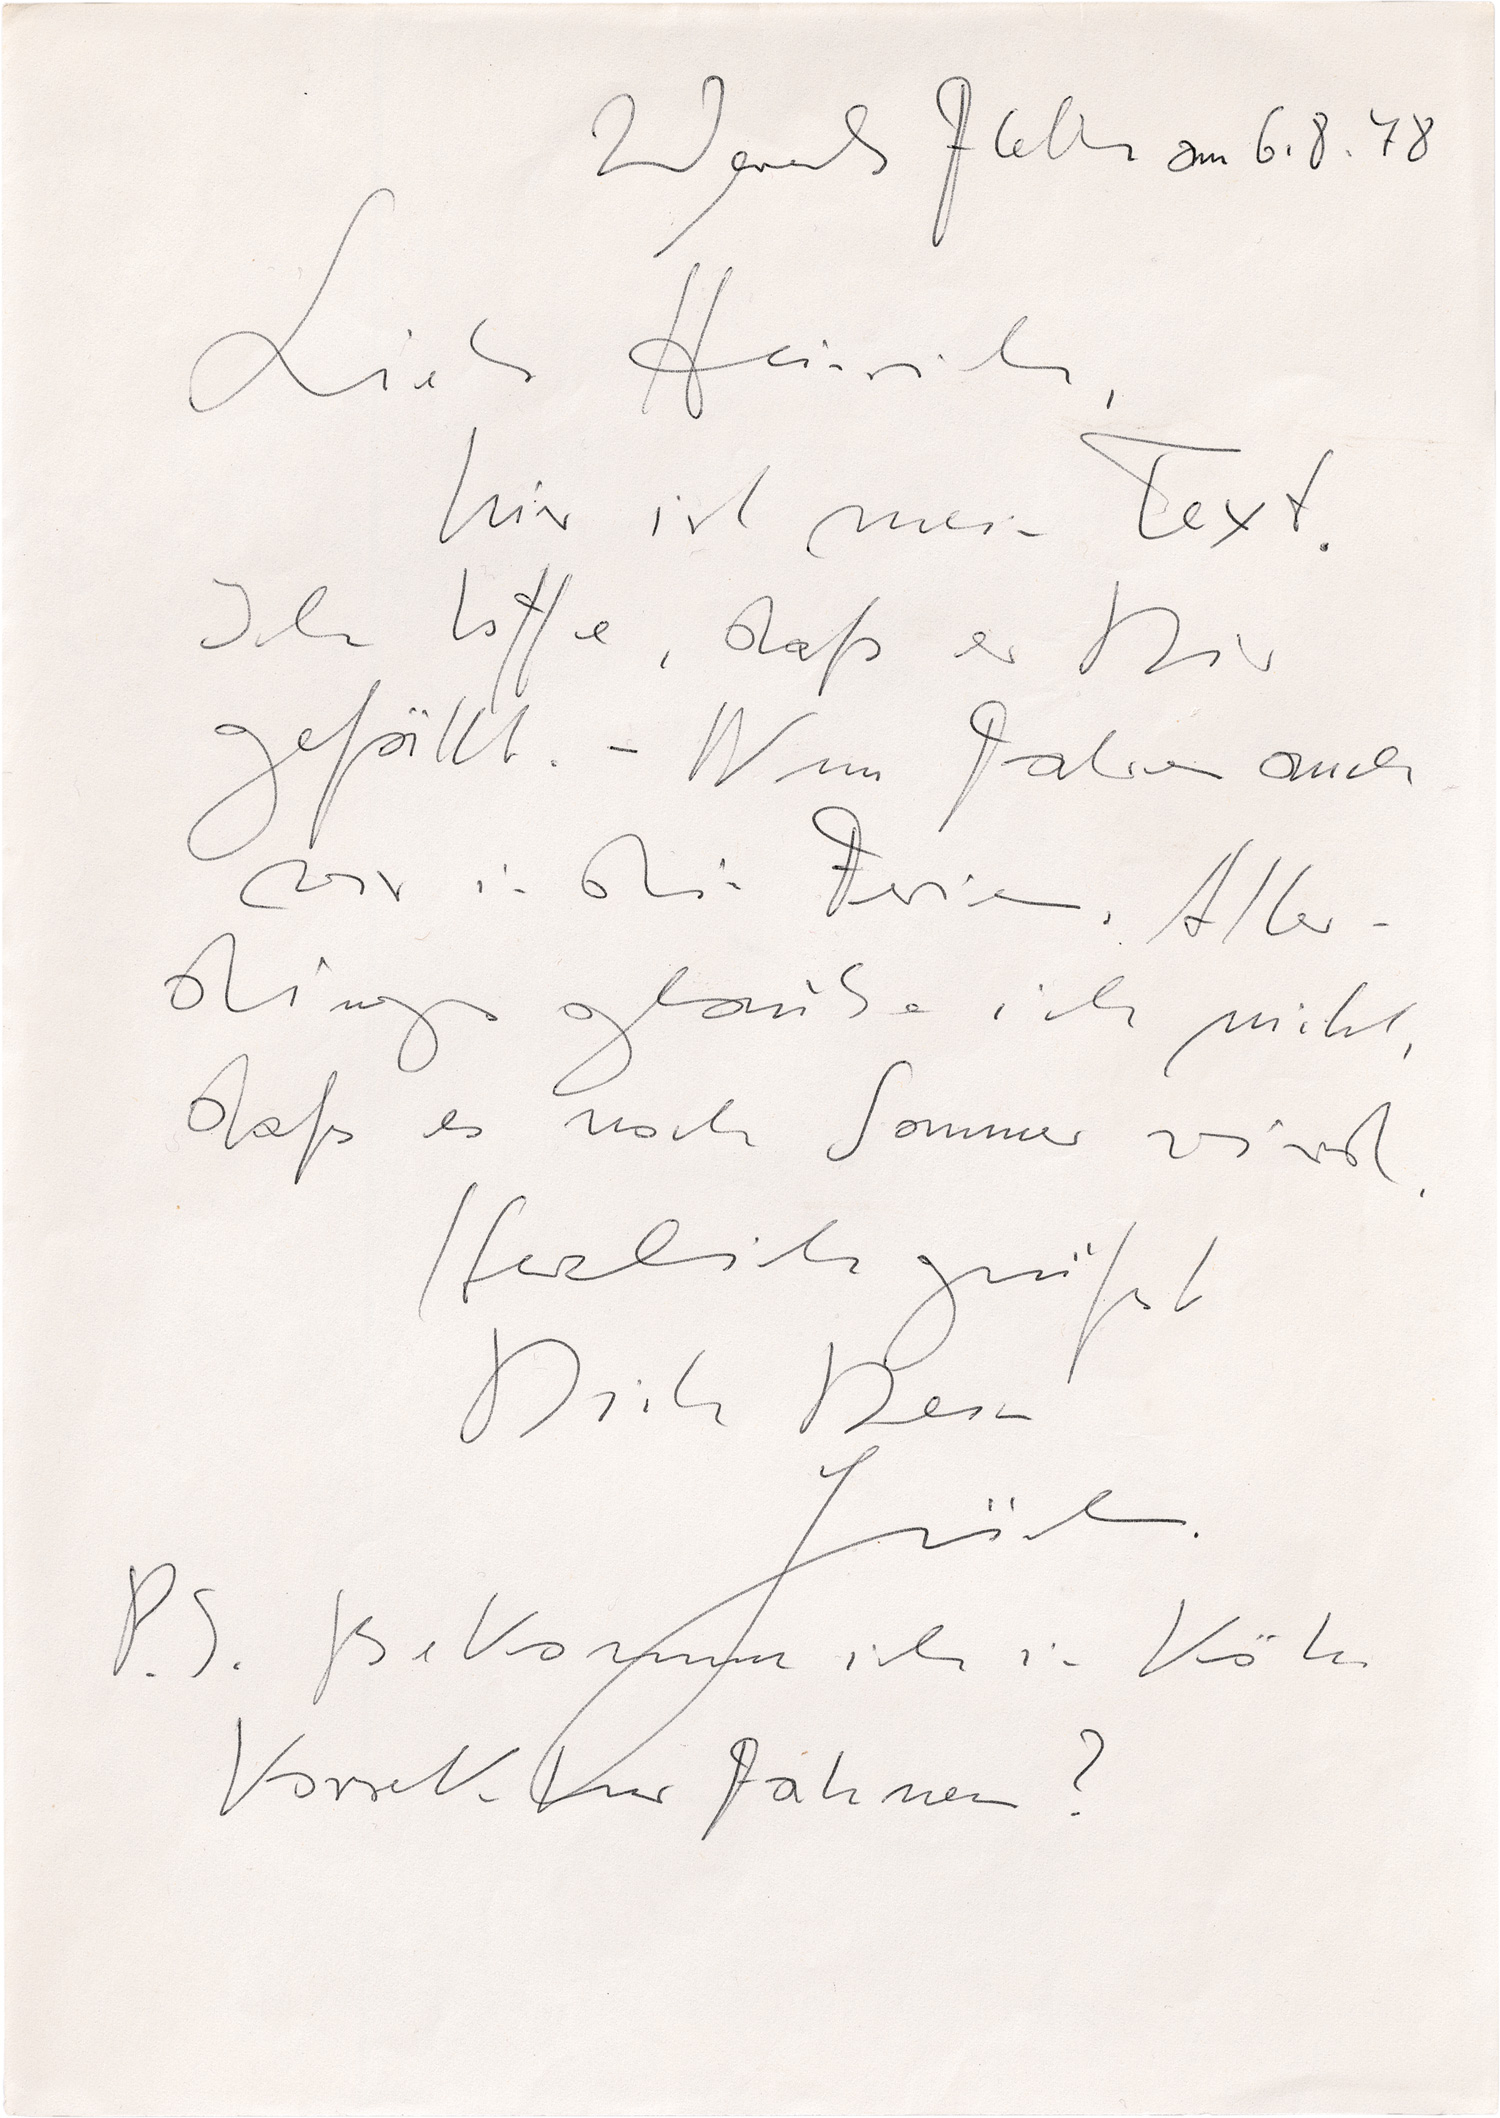 Wewelsfleth am 6.8.78
Lieber Heinrich,
hier ist mein Text.
Ich hoffe, daß er Dir
gefällt. - Nun fahren auch
wir in die Ferien. Aller-
dings glaube ich nicht,
daß es noch Sommer wird.
Herzlich grüßt
Dich Dein
P.S. Bekomme ich in Köln
Korrektur Fahnen?